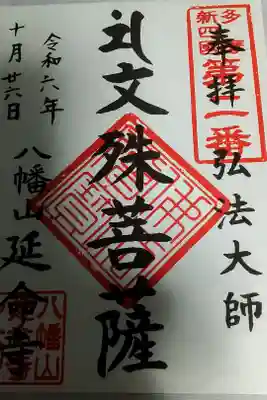 多
新四國
第二番
奉拝
弘法大師
文殊菩薩
令和六年
十月廿六日
八幡山延命寺
八幡山